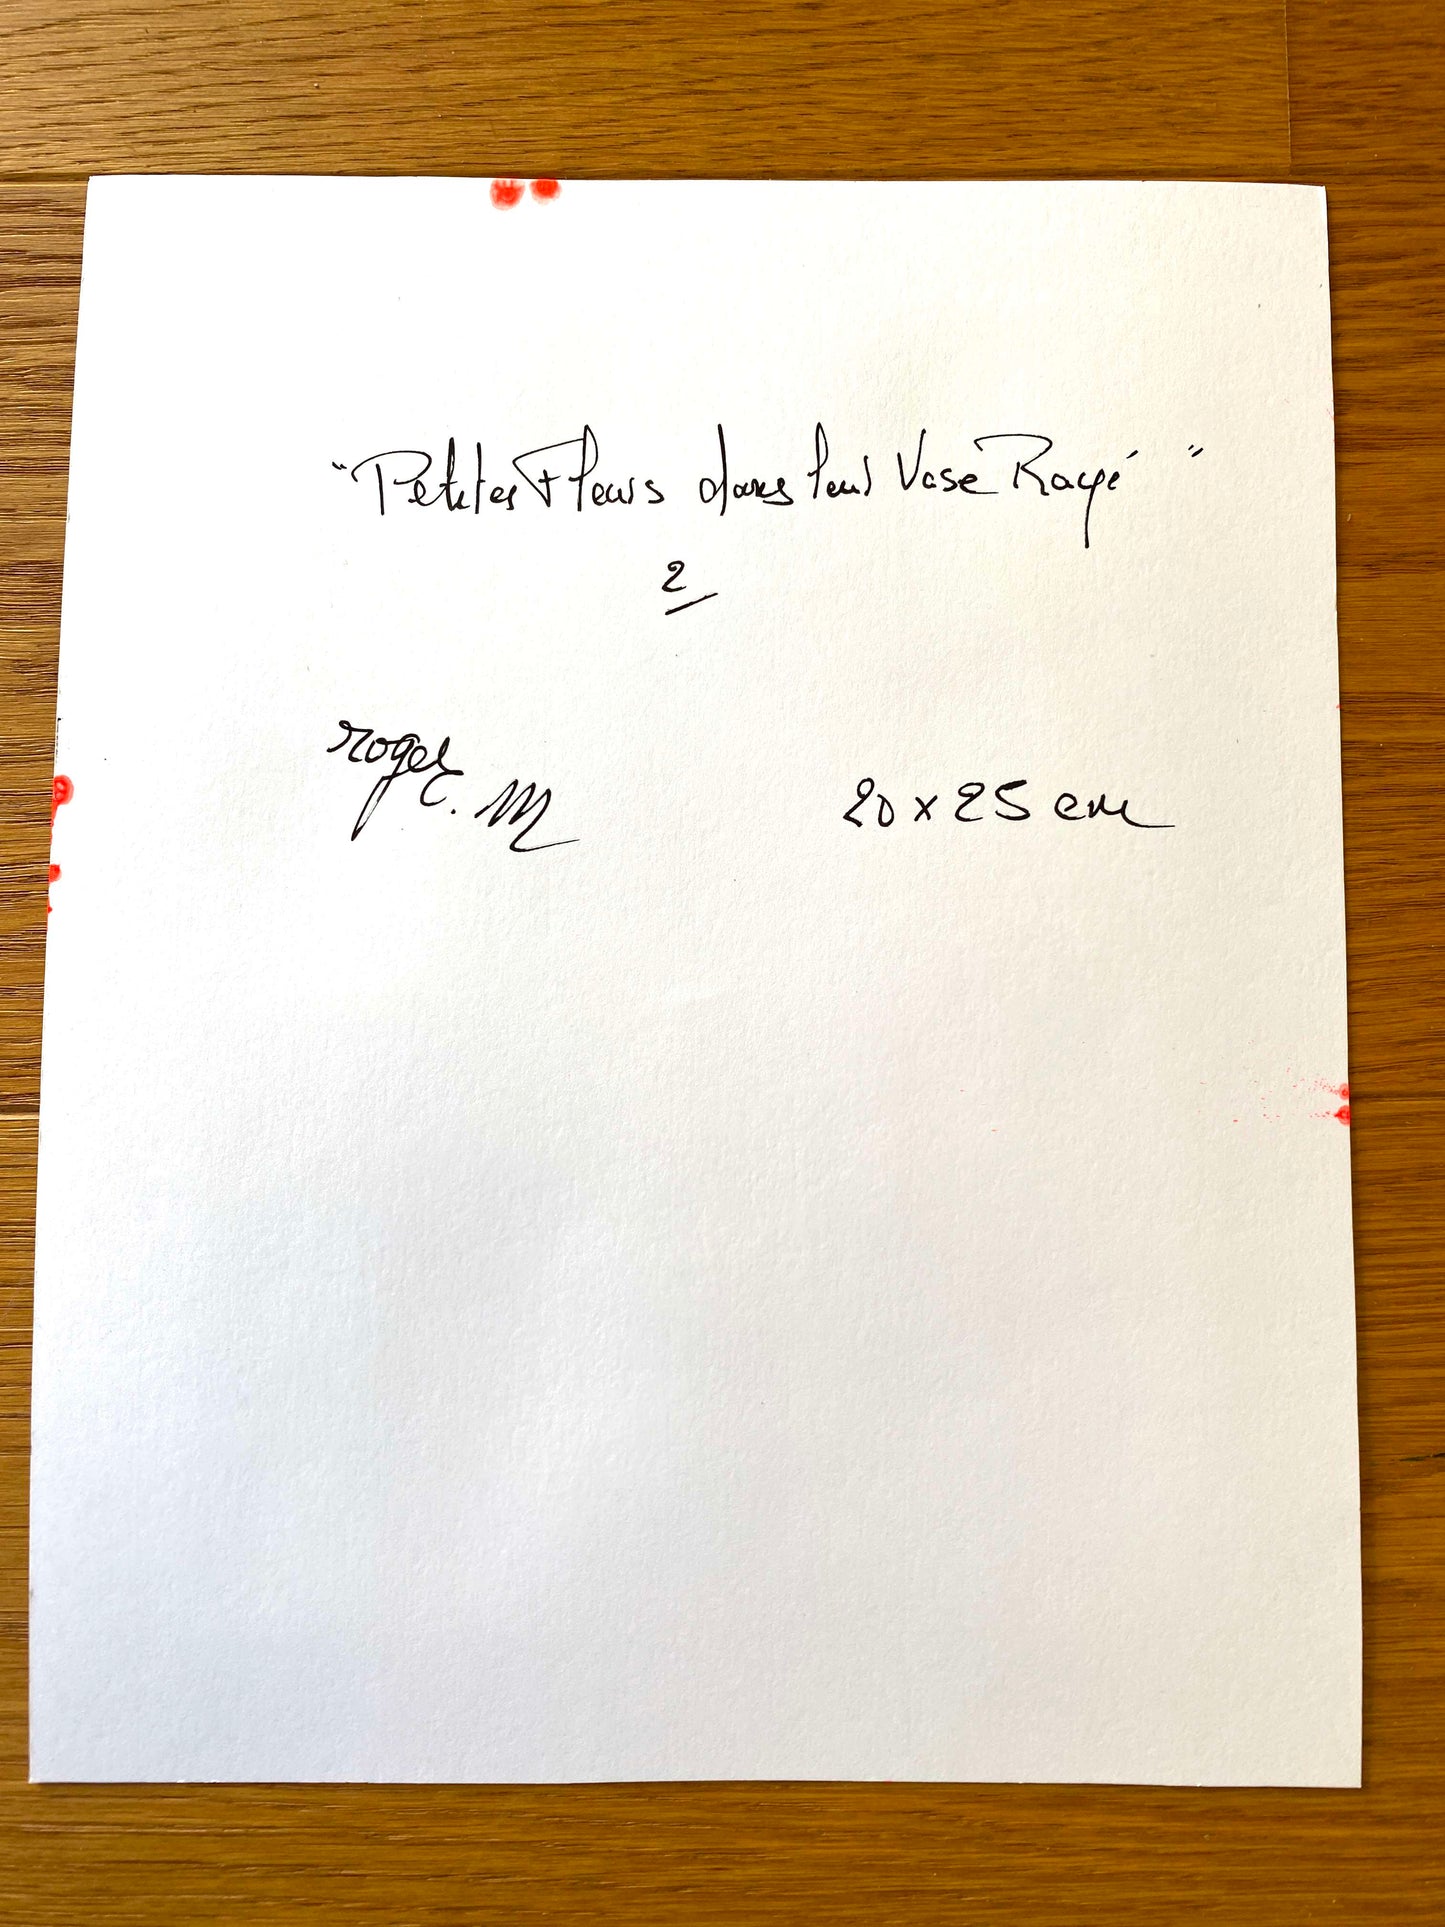 "Petites Fleurs dans leur Vase Rayé"
2
roger
C. M
20 x 25 cm